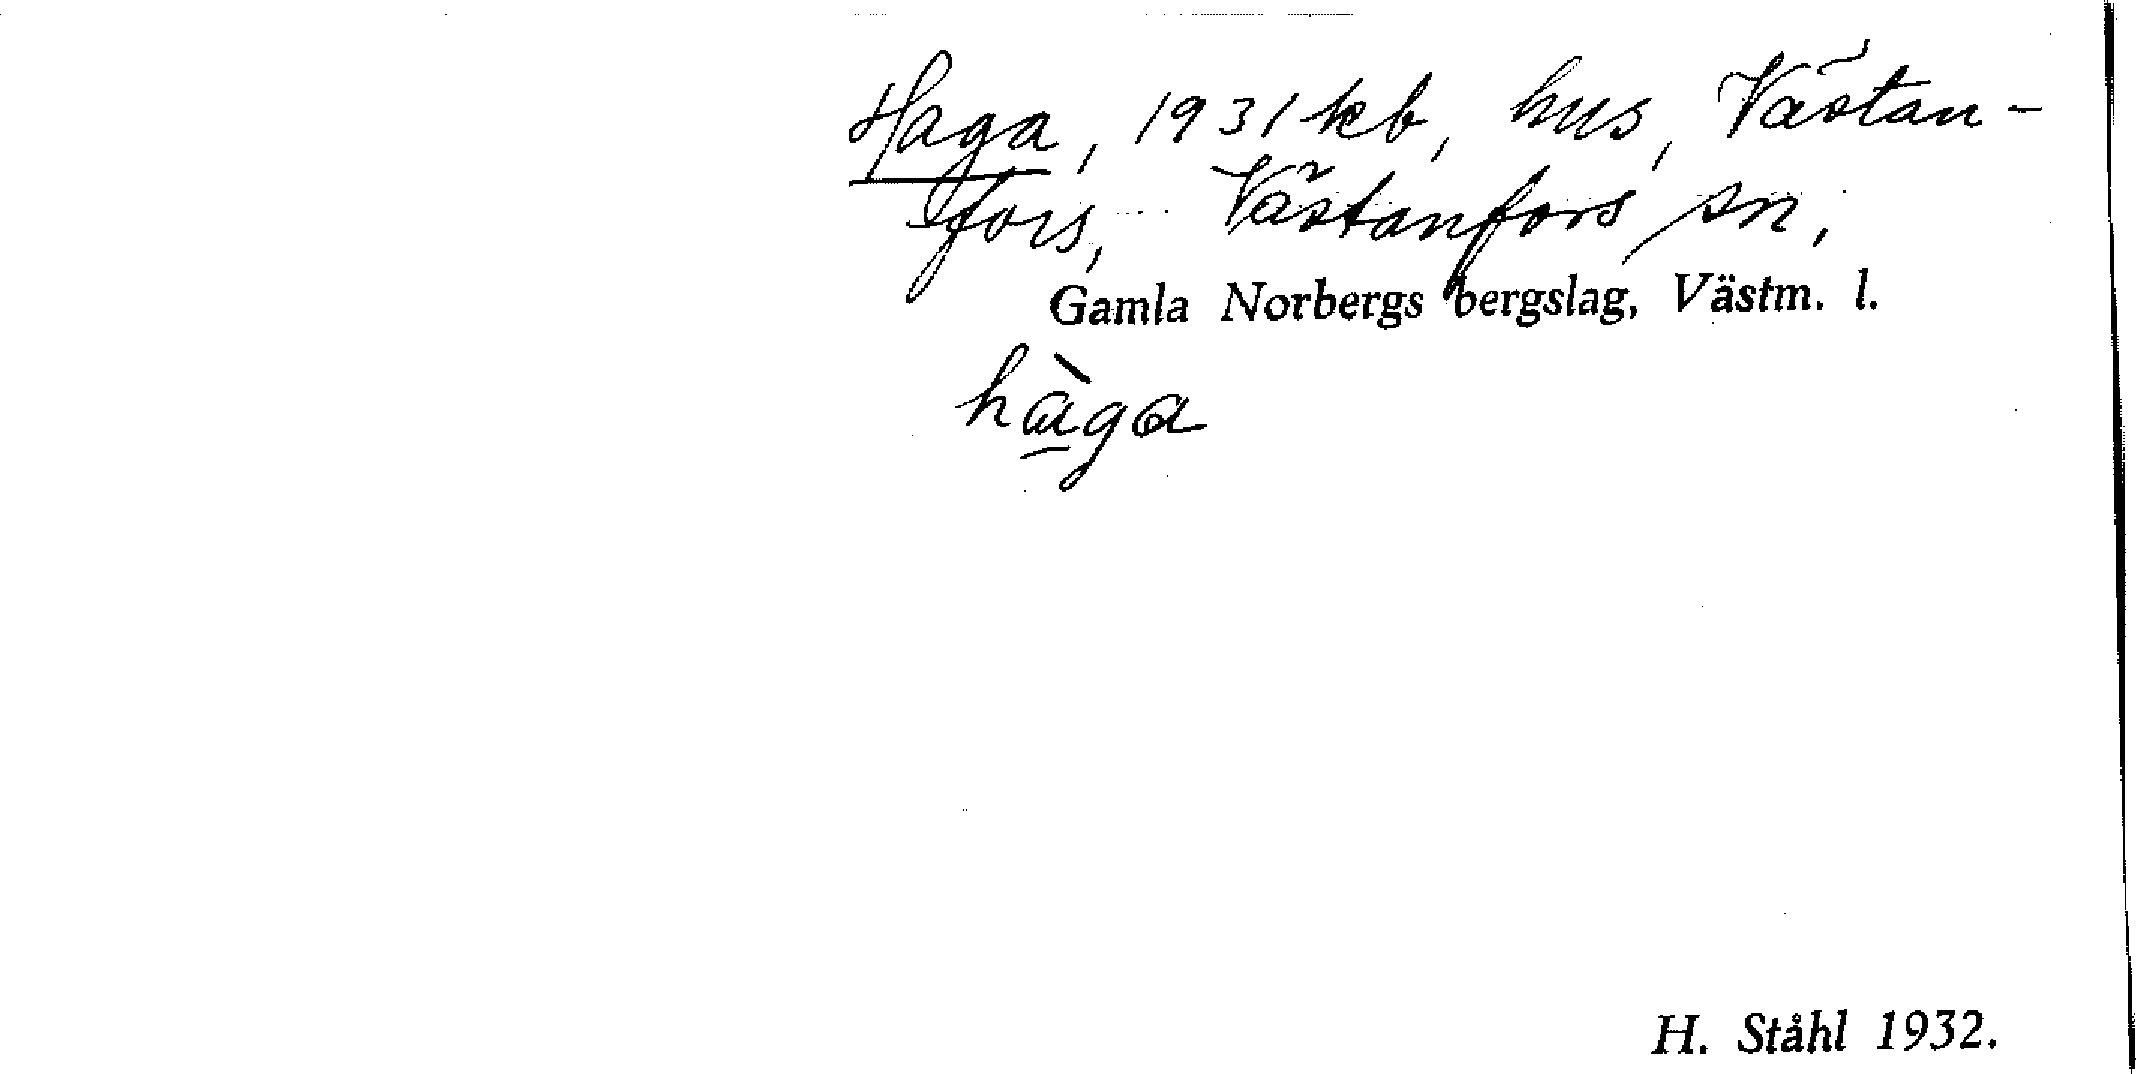 Haga, 1931 kb, hus, Västan-
fors, Västanfors sn,
Gamla Norbergs bergslag, Västm. l.
hà̱ga
H. Ståhl 1932.